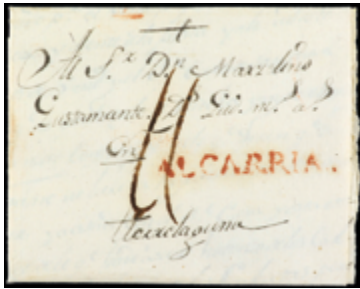 Al S.r D.n Marzelino
Gustamante
En
ALCARRIA.
Torrelaguna